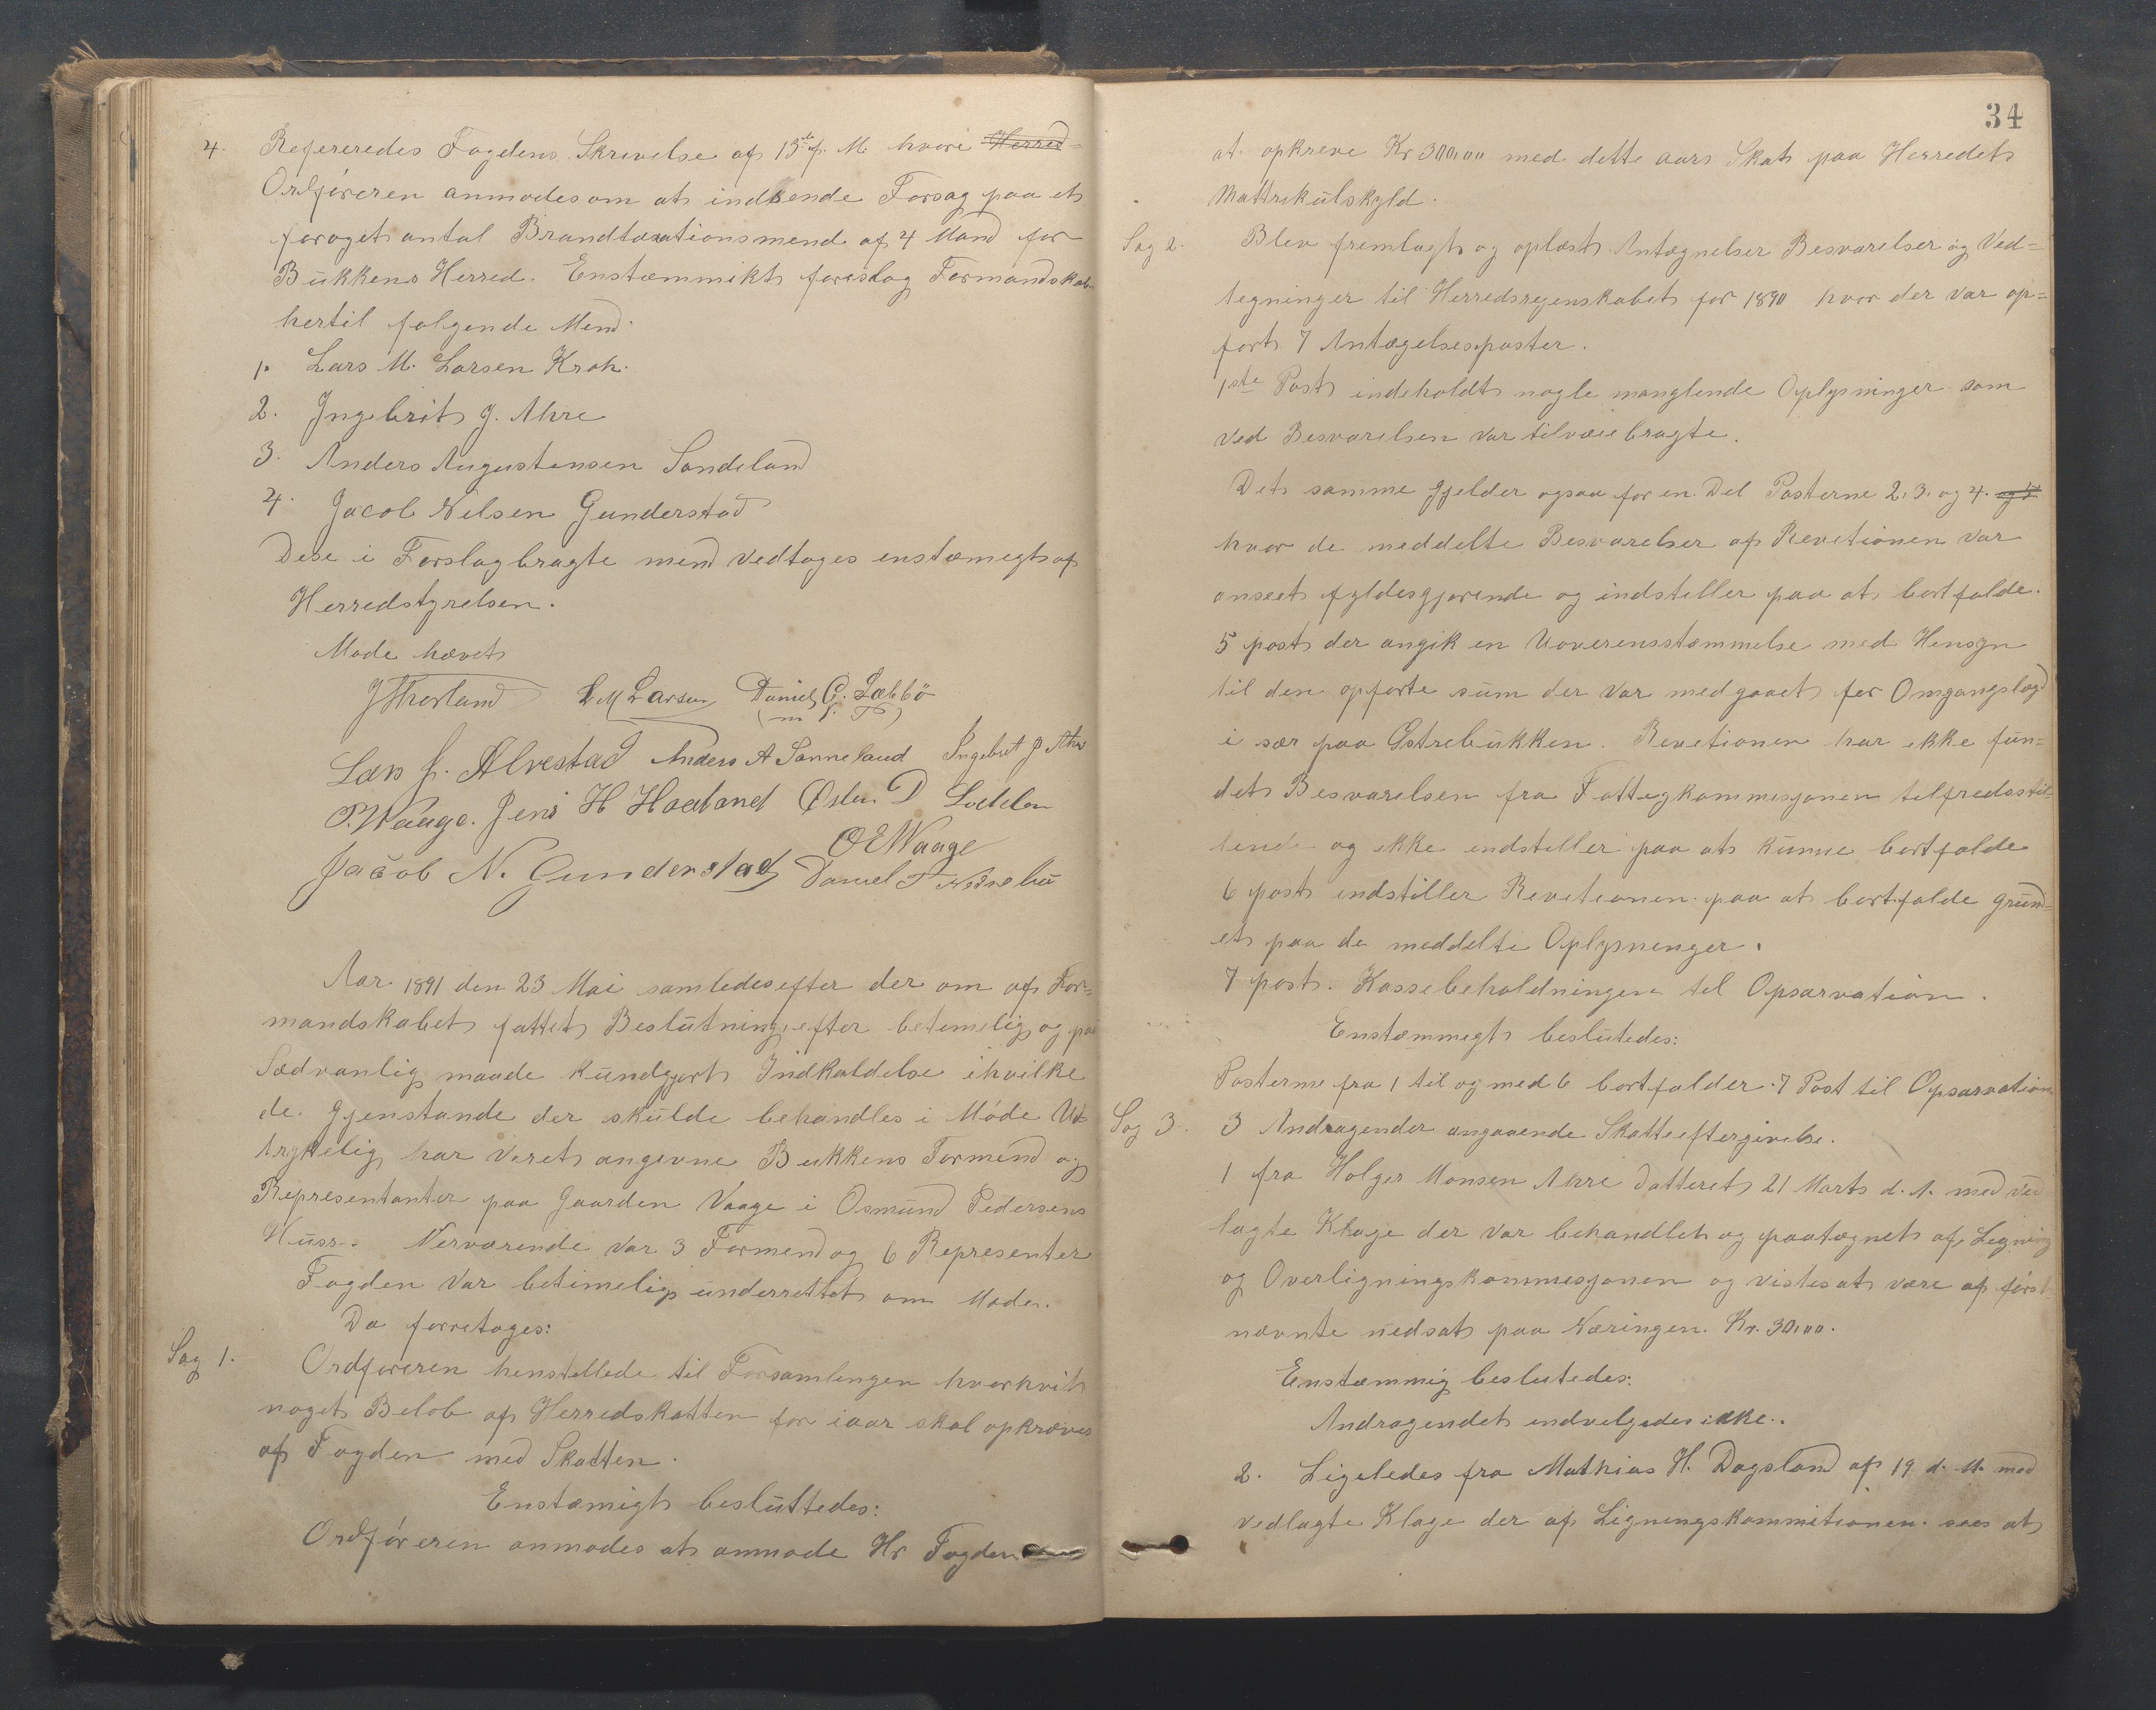 4. Refereredes Fogdens Skrivelse af 15de f. M. hvori Herred-
Ordføreren anmodes om at indsende Forsag paa et
foraget antal Brandtaxationsmend af 4 Mand for
Bukkens Herred. Enstæmmikt foreslog Formandskab
hertil følgende Mend:
1. Lars M. Larsen Kroh.
2. Ingebrit J. Ahre
3. Anders Augustensen Sandeland
4. Jacob Nilsen Gunderstad
Dese i Forslag bragte mend vedtoges enstæmegt af
Herredstyrelsen.
Møde hævet
L M Larsen Daniel C. Læbbö
(m. f. P)
Lars J. Alvestad Anders A Sanneland Ingebret J Ahre
P. Waage. Jens H Hoaland Østen D
O E Waage
Jacob N. Gunderstad Daniel T
Aar 1891 den 23 Mai samledes efter der om af For=
mandskabet fattet Beslutning, efter betimelig og paa
Sædvanlig maade kundgjort Indkaldelse ihvilke
de Gjenstande der skulde behandles i Møde Ud-
trykelig har veret angevne Bukkens Formend og
Representanter paa Gaarden Vaage i Osmund Pedersens
Huse. Nerværende var 3 Formend og 6 Representer
Fogden var betimelig underrettet om Møde.
Da forretoges:
Sag 1. Ordføreren henstillede til Forsamlingen hvorhvit
noget Beløb af Herredskatten for iaar skal opkræves
af Fogden med Skatten.
Enstæmigt besluttedes:
Ordføreren anmodes at anmode Hr Fogden
34
at opkreve Kr 300,00 med dette aars Skat paa Herredets
Mattrikulskyld.
Sag 2. Blev fremlagt og oplæst Antægnelser Besvarelser og Ved=
tegninger til Herredsregenskabet for 1890 hvor der var op=
ført 7 Antægelsesposter.
1ste Post indeholdt nogle manglende Oplysninger som
ved Besvarelsen var tilvæiebragte.
Det samme gjelder ogsaa for en Del Posterne 2. 3. og 4.
hvor de meddelte Besvarelser af Revitionen var
anseet fyldesgjørende og indstiller paa at bortfalde.
5 post der angik en Uoverensstæmmelse med Hensyn
til den opførte sum der var medgaaet for Omgangslægd
i sær paa Østrebukken. Revetionen har ikke fun=
det Besvarelsen fra Fattigkommisjonen tilfredsstil=
lende og ikke endstiller paa at kunne bortfalde
6 post indstiller Revetionen paa at bortfalde grund=
et paa de meddelte Oplysninger.
7 post. Kassebeholdningen til Opsarvation.
Enstæmmegt beslutedes:
Posterne fra 1 til og med 6 bortfalder. 7 Post til Opsarvation
Sag 3. 3 Andragender angaaende Skatteeftergivelse.
1 fra Holger Monsen Ahre datteret 21 Marts d. A. med ved
lagte Klage der var behandlet og paatægnet af Ligning
og Overligningskommisjonen og vistes at være af først
nævnte nedsat paa Næringen. Kr. 30,00.
Enstæmmig beslutedes:
Andragendet indvelgedes ikke.
2. Ligeledes fra Mathias H. Dagsland af 19 d. M. med
vedlagte Klage der af Ligningskommitionen sees at